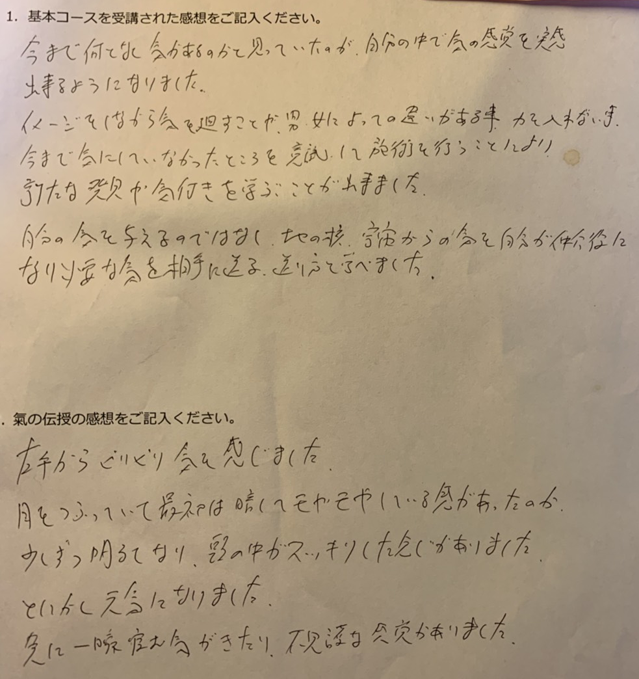 1. 基本コースを受講された感想をご記入ください。
今まで何となく気があるのかと思っていたのが、自分の中で気の感覚を実感
出来るようになりました。
イメージをしながら気を廻すことや、男女によっての違いがある事、力を入れない事、
今まで気にしていなかったところを意識して施術を行うことにより
新たな発見や気付きを学ぶことが出来ました。
自分の気を与えるのではなく、地の核、宇宙からの気を自分が仲介役に
なり必要な気を相手に送る、送り方を学べました。
. 氣の伝授の感想をご記入ください。
左手からビリビリ気を感じました。
目をつぶっていて最初は暗くてモヤモヤしている感があったのが、
少しずつ明るくなり、頭の中がスッキリした感じがありました。
とにかく元気になりました。
急に一瞬 気がきたり、不思議な感覚がありました。